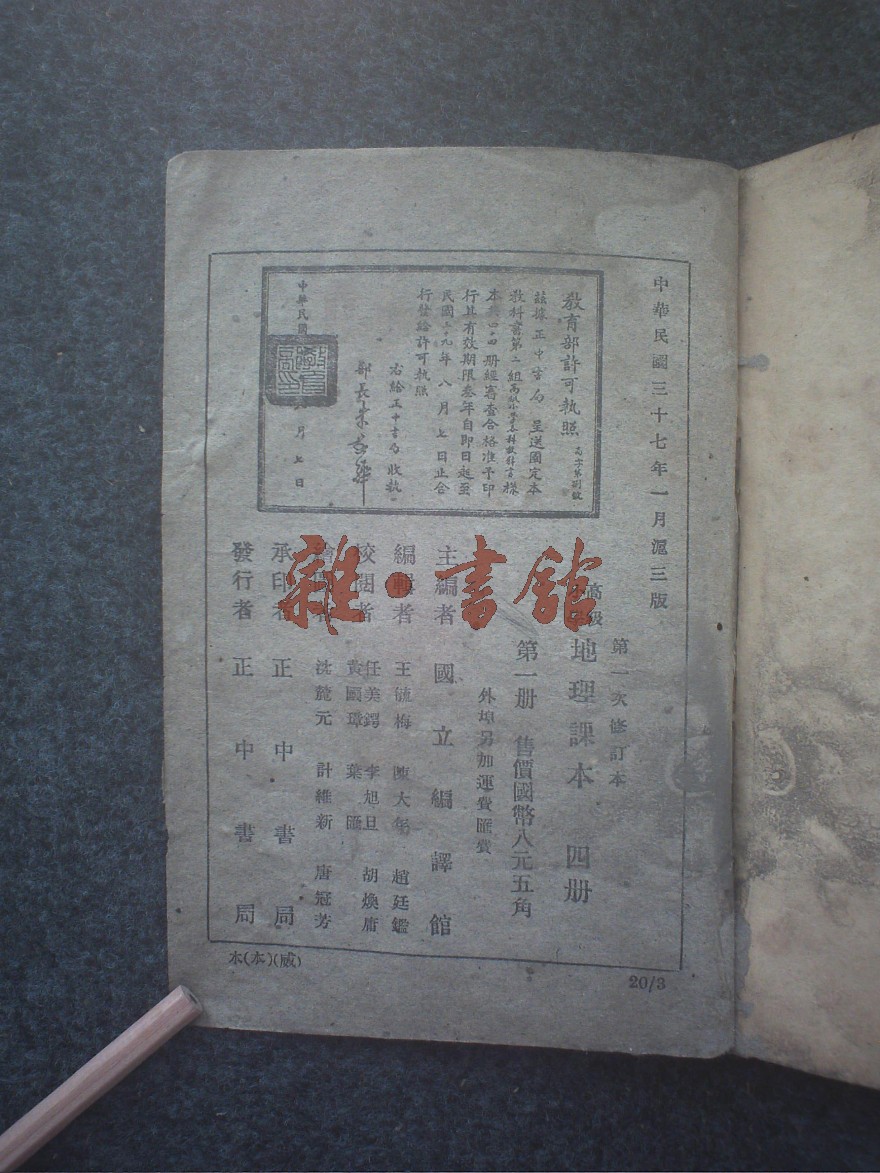 中華民國三十七年一月滬三版
教育部許可執照
茲據正中書局呈送國定本
教科書第二組高級小學各科教科書樣
本共四·四册經審查合格准予印
行其有效期限叁年自即日起至
民國三九年八月七日止合
行發給許可執照
右給正中書局收執
部長朱家驊
中華民國
月七日
第一次修訂本
高級
地理課本 四册
第一册 售價國幣八元五角
外埠另加運費匯費
主編者 國立編譯館
編輯者 王毓梅 陳大年 趙廷鑑
校閱者 任美鍔 李旭旦 胡煥庸
黃國璋 葉匯
沈麓元 計維新 唐冠芳
承印者 正中書局
發行者 正中書局
本(本)(威)
20/3
雜·書館